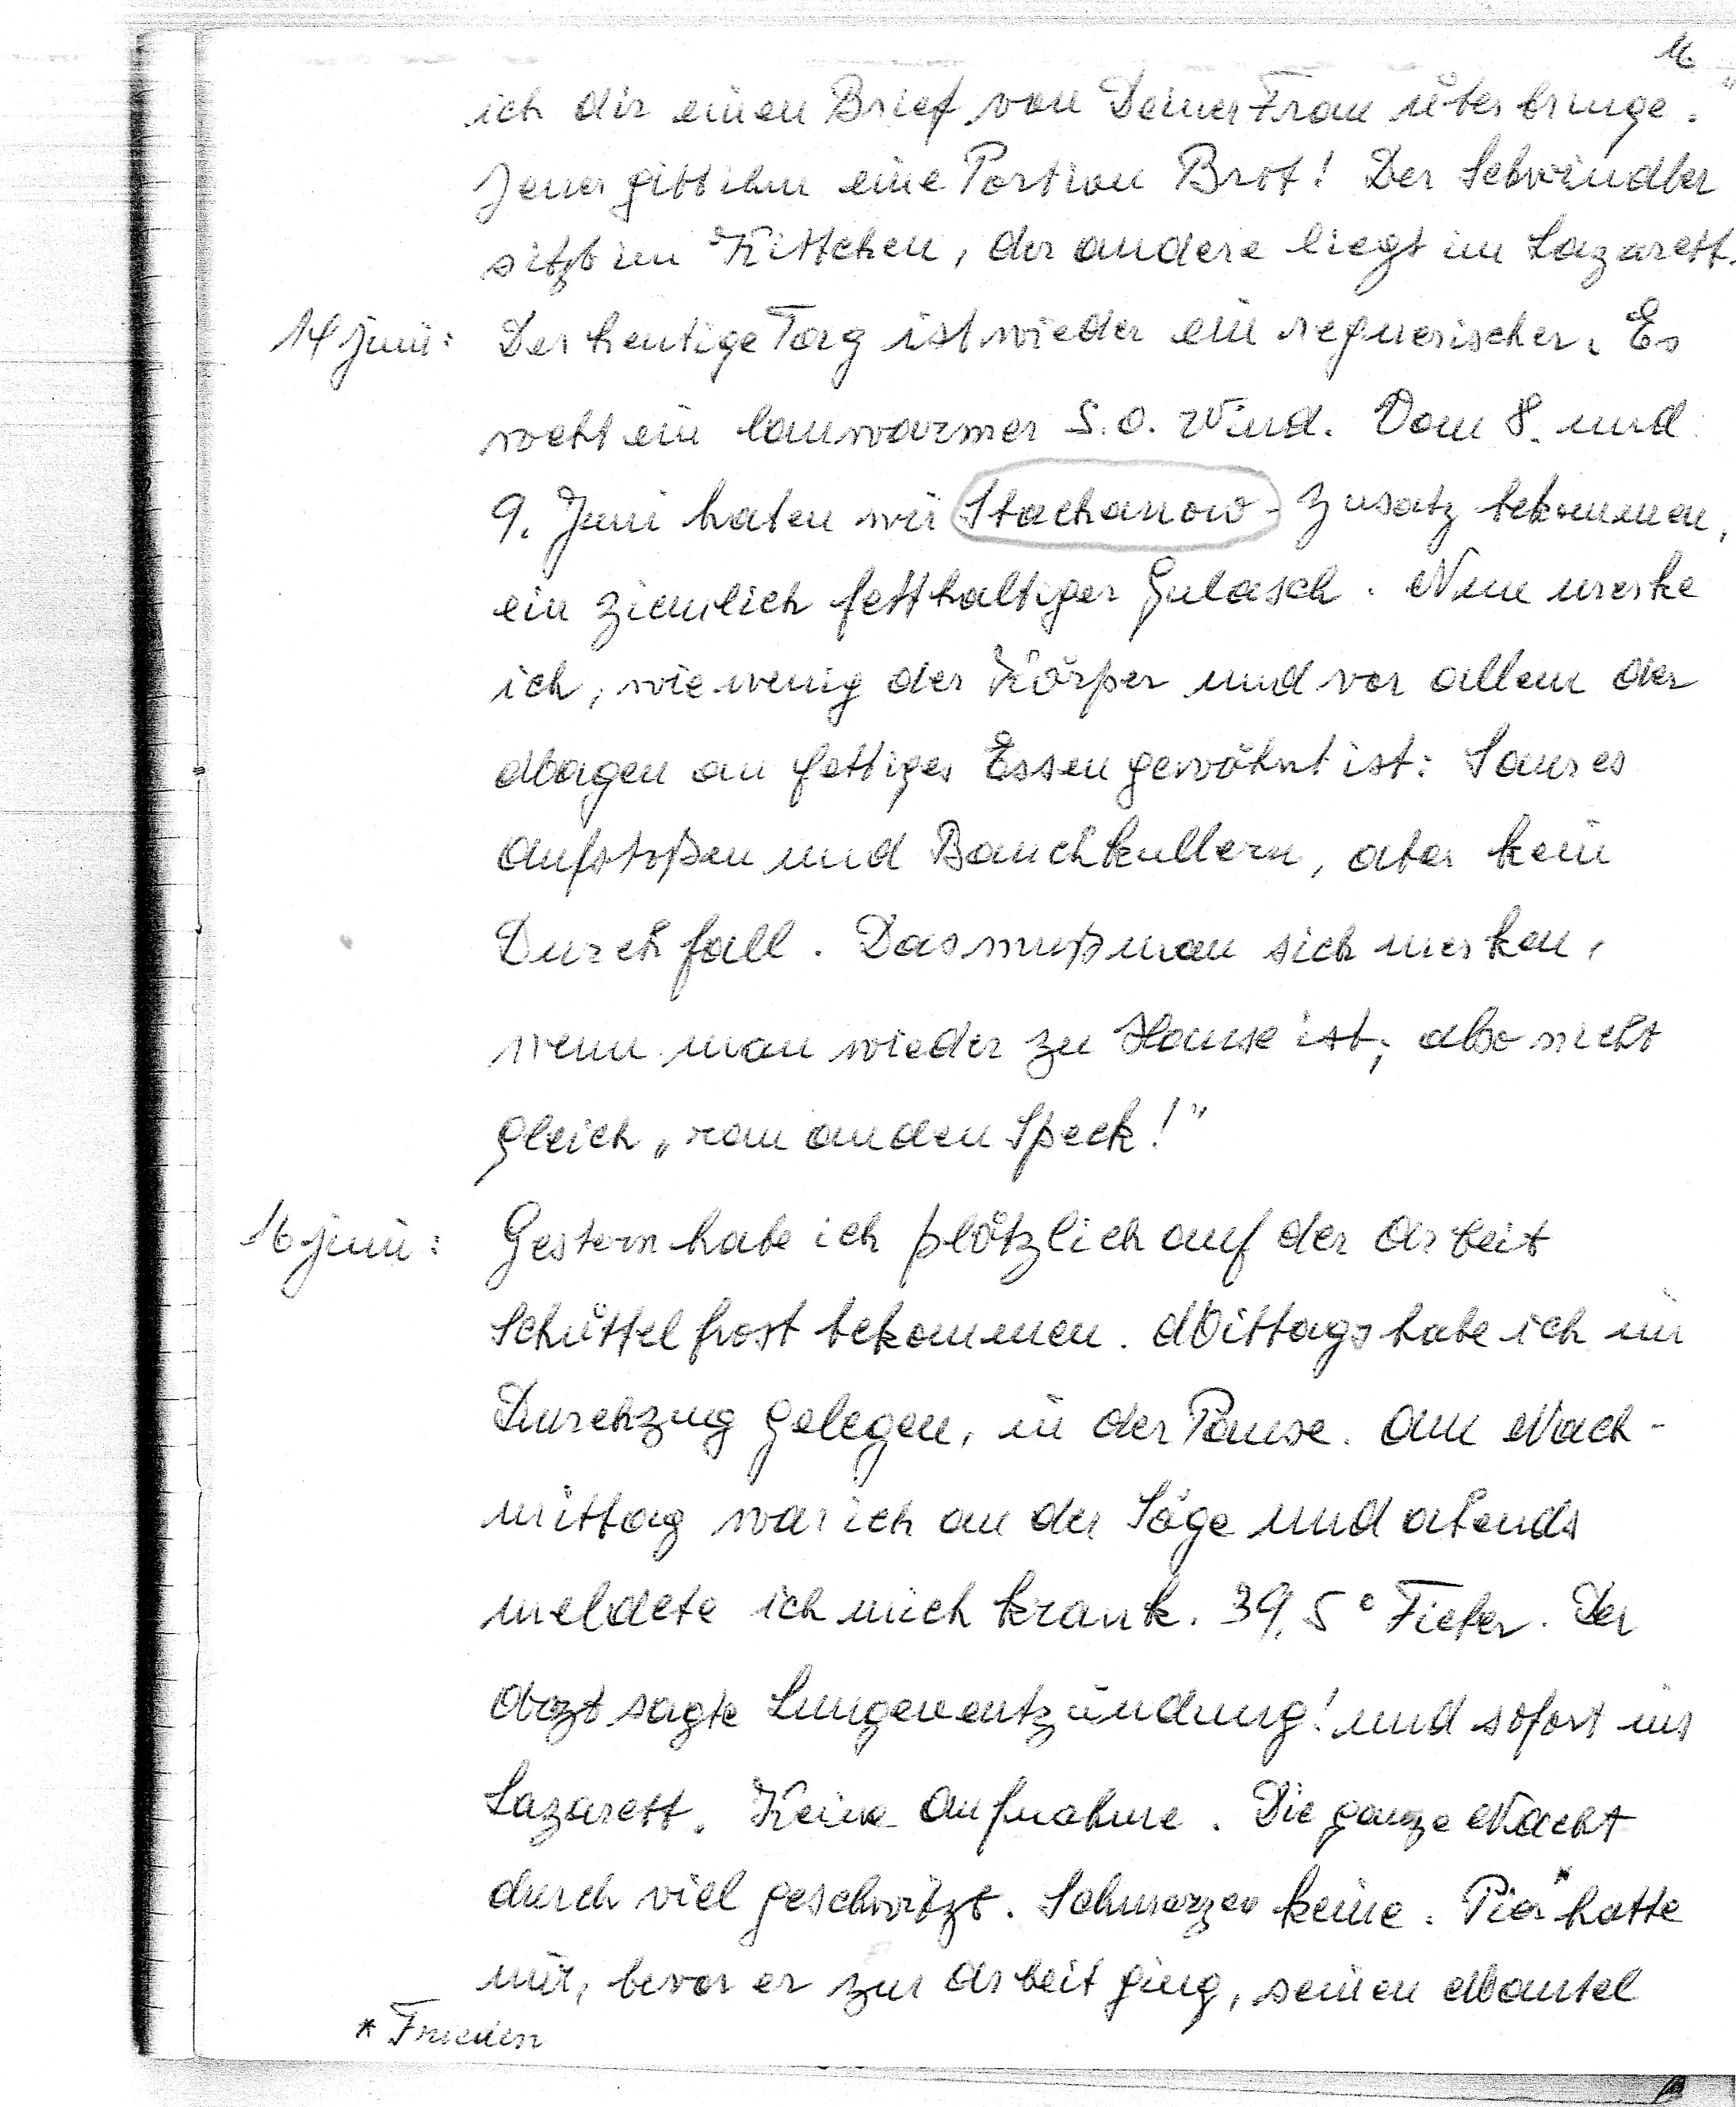 16
ich dir einen Brief von Deiner Frau überbringe."
Jener gibt ihm eine Portion Brot! Der Schwindler
sitzt im Kittchen, der andere liegt im Lazarett.
14 Juni: Der heutige Tag ist wieder ein regnerischer. Es
weht ein lauwarmer S.O. Wind. Vom 8. und
9. Juni haben wir Stachanow-Zusatz bekommen,
ein ziemlich fetthaltiger Gulasch. Nun merke
ich, wie wenig der Körper und vor allem der
Magen an fettiges Essen gewöhnt ist: Saures
Aufstoßen und Bauchkullern, aber kein
Durchfall. Das muß man sich merken,
wenn man wieder zu Hause ist; also nicht
gleich „ran an den Speck!"
16 Juni: Gestern habe ich plötzlich auf der Arbeit
Schüttelfrost bekommen. Mittags habe ich im
Durchzug gelegen, in der Pause. Am Nach-
mittag war ich an der Säge und abends
meldete ich mich krank. 39,5° Fieber. Der
Arzt sagte Lungenentzündung! und sofort ins
Lazarett. Keine Aufnahme. Die ganze Nacht
durch viel geschwitzt. Schmerzen keine. Pier* hatte
mir, bevor er zur Arbeit ging, seinen Mantel
* Frieden